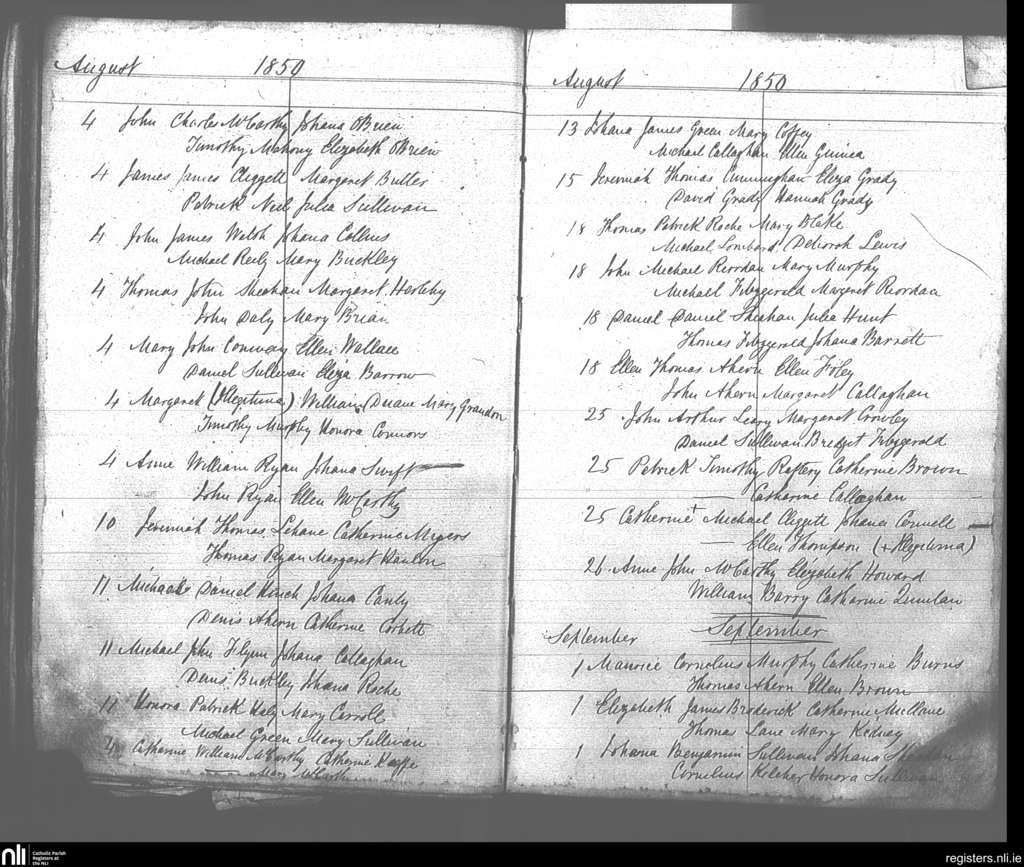 August 1850
4 John Charles McCarthy Johana OBrien
Timothy Mahony Elizabeth OBrien
4 James James Cliggett Margaret Butler
Patrick Neil Julia Sullivan
4 John James Walsh Johana Collins
Michael Reily Mary Buckley
4 Thomas John Sheahan Margaret Herlehy
John Daly Mary Brian
4 Mary John Conway Ellen Wallace
Daniel Sullivan Eliza Barrow
4 Margaret (Illegitima) William Duane Mary Grandon
Timothy Murphy Honora Connors
4 Anne William Ryan Johana Swift
John Ryan Ellen McCarthy
10 Jeremiah Thomas Lehane Catherine Myers
Thomas Ryan Margaret Hanlon
11 Michael Daniel Johana
Denis Ahern Catherine Corbett
11 Michael John Flynn Johana Callaghan
Denis Buckley Johana Roche
11 Honora Patrick Haly Mary Carroll
Michael Green Mary Sullivan
4 Catherine William McCarthy Catherine Keeffe
Mary McCarthy
August 1850
13 Johana James Green Mary Coffey
Michael Callaghan Ellen Guinea
15 Jeremiah Thomas Cunninghan Eliza Grady
David Grady Hannah Grady
18 Thomas Patrick Roche Mary Blake
Michael Lombard Deborah Lewis
18 John Michael Reordan Mary Murphy
Michael Fitzgerald Margaret Riordan
18 Daniel Daniel Sheahan Julia Hunt
Thomas Fitzgerald Johana Barrett
18 Ellen Thomas Ahern Ellen Foley
John Ahern Margaret Callaghan
25 John Arthur Leary Margaret Crowley
Daniel Sullivan Bridget Fitzgerald
25 Patrick Timothy Raftery Catherine Brown
— Catharine Callaghan
25 Catherine+ Michael Cliggett Johana Connell
— Ellen Thompson (+Illegitima)
26 Anne John McCarthy Elizabeth Howard
William Barry Catharine Quinlan
September September
1 Maurice Cornelius Murphy Catherine Burns
Thomas Ahern Ellen Brown
1 Elizabeth James Broderick Catherine Mullane
Thomas Lane Mary Kidney
1 Johana Benjamin Sullivan Johana
Cornelius Kelcher Honora Sullivan
nli Catholic Parish
Registers at
the NLI
registers.nli.ie